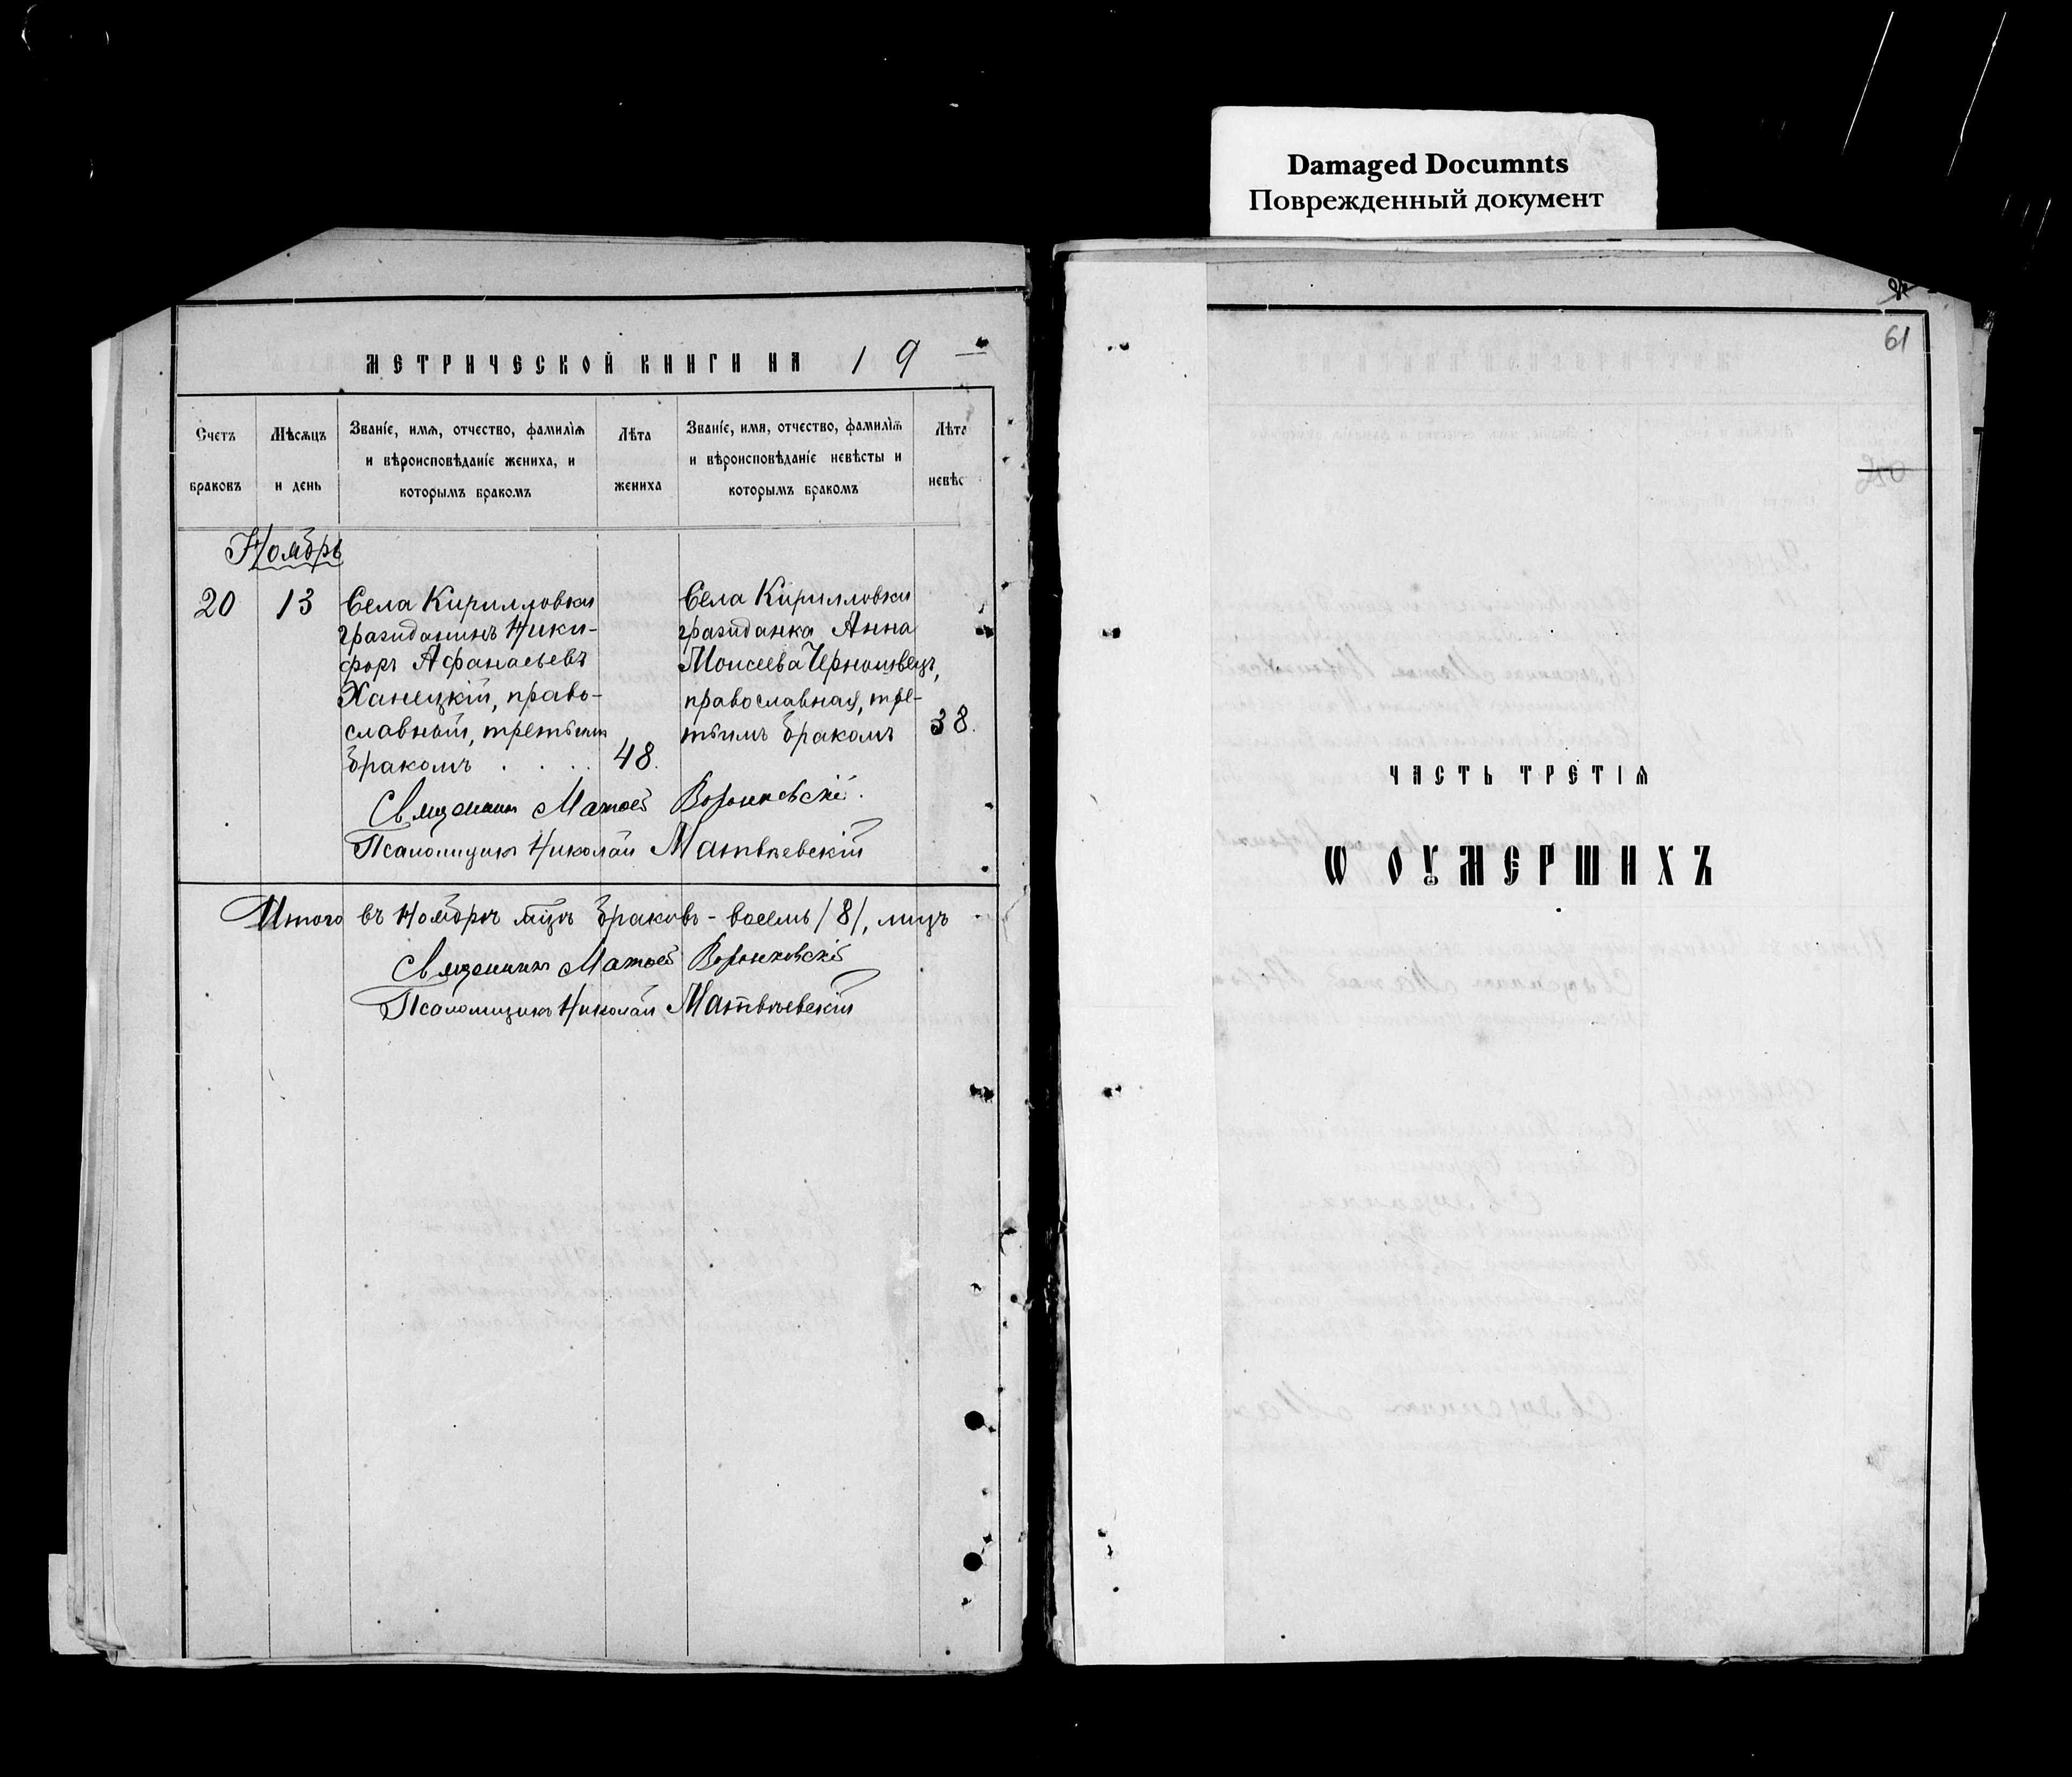 Damaged Documnts
Поврежденный документ
МЕТРИЧЕСКОЙ КНИГИ НА 19
Счетъ браковъ
Мѣсяцъ и день
Званіе, имя, отчество, фамилія
и вѣроисповѣданіе жениха, и
которымъ бракомъ
Лѣта жениха
Званіе, имя, отчество, фамилія
и вѣроисповѣданіе невѣсты и
которымъ бракомъ
Лѣта
невѣс
Ноябрь
20
13
Села Кирилловки
гражданинъ Ники-
форъ Афанасьевъ
Ханецкій, право-
славный, третьимъ
бракомъ . . . .
48.
Села Кирилловки
гражданка Анна
Моисеева Черношвецъ,
православная, тре-
тьимъ бракомъ
38.
Священникъ Матѳей Воронковскій.
Псаломщикъ Николай Матвѣевскій
Итого въ Ноябрѣ мцѣ браковъ - восемь /8/, лицъ
Священникъ Матѳей Воронковскій
Псаломщикъ Николай Матвѣевскій
61
250
ЧАСТЬ ТРЕТІЯ
Ѡ ОУМЕРШИХЪ